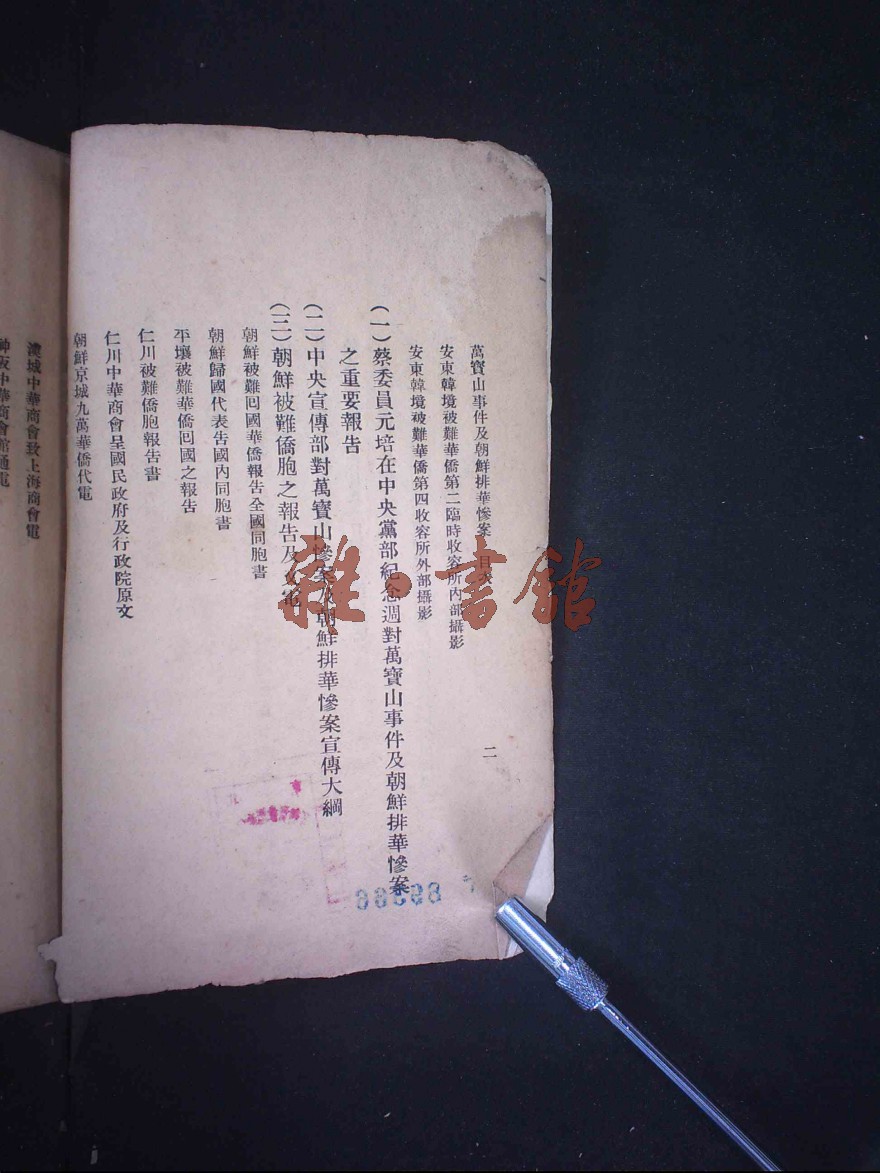 萬寶山事件及朝鮮排華慘案 目次
二
安東韓境被難華僑第二臨時收容所內部攝影
安東韓境被難華僑第四收容所外部攝影
(一)蔡委員元培在中央黨部紀念週對萬寶山事件及朝鮮排華慘案
之重要報告
(二)中央宣傳部對萬寶山慘案及朝鮮排華慘案宣傳大綱
(三)朝鮮被難僑胞之報告及文電
朝鮮被難回國華僑報告全國同胞書
朝鮮歸國代表告國內同胞書
平壤被難華僑回國之報告
仁川被難僑胞報告書
仁川中華商會呈國民政府及行政院原文
朝鮮京城九萬華僑代電
漢城中華商會致上海商會電
神阪中華商會館通電
雜·書館